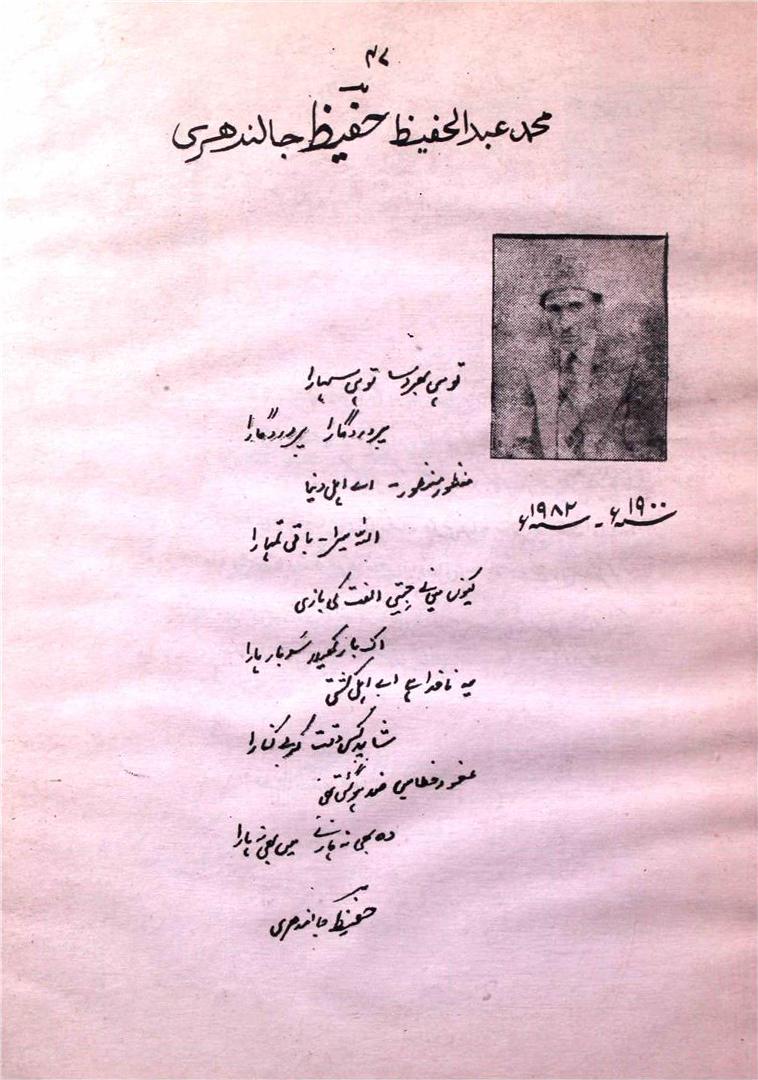 ۴۷
محمد عبدالحفیظ حفیظ جالندھری
تو ہی بھروسہ تو ہی سہارا
پروردگارا پروردگارا
منظور منظور۔ اے اہل دنیا
۱۹۰۰ء۔ ۱۹۸۲ء
اللہ میرا۔ باقی تمہارا
کیوں میں نے جیتی الفت کی بازی
اک بار کھیلا سَو بار ہارا
یہ ناخدا ہے اب اہل کشتی
شاید کس وقت کرلے کنارا
عفو و خطا میں ضد ہو گئی تھی
وہ بھی نہ ہارے میں بھی نہ ہارا
حفیظ جالندھری